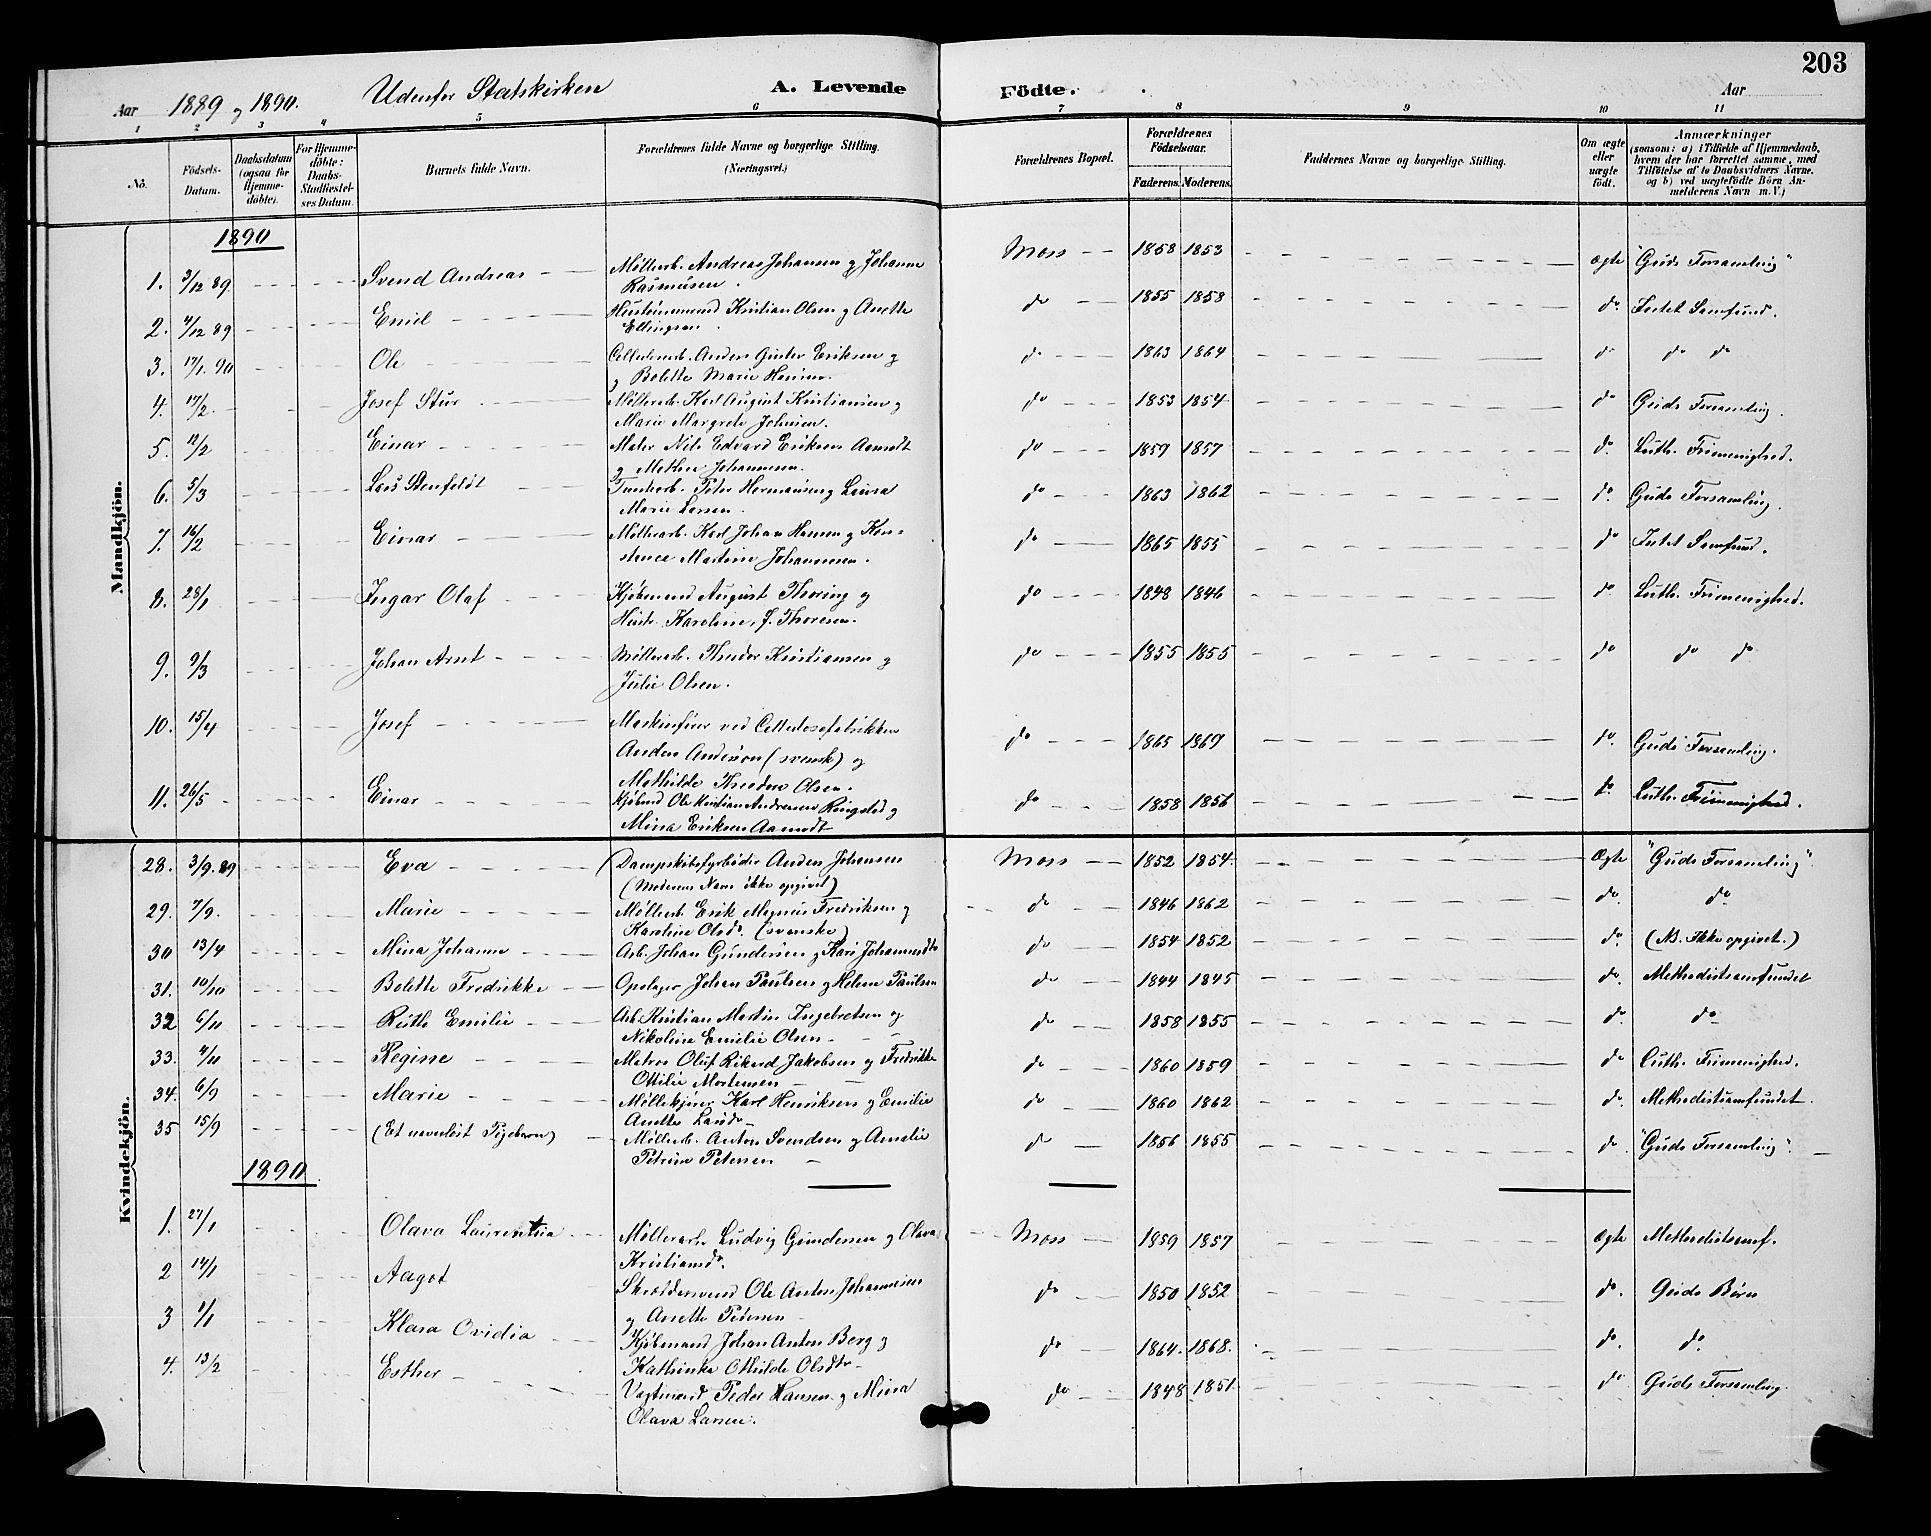 203
Aar 1889 og 1890. Udenfor Statskirken A. Levende Fødte. Aar
1 2 3 4 5 6 7 8 9 10 11
No. Fødsels-Datum. Daabsdatum (ogsaa for Hjemme-døbte). For Hjemme-døbte: Daabs-Stadfæstel-ses Datum. Barnets fulde Navn. Forældrenes fulde Navne og borgerlige Stilling. (Næringsvei.) Forældrenes Bopæl. Forældrenes Fødselsaar. Faderens. Moderens. Faddernes Navne og borgerlige Stilling. Om ægte eller uægte født. Anmærkninger (saasom: a) i Tilfælde af Hjemmedaab, hvem der har forrettet samme, med Tilføielse af to Daabsvidners Navne, og b) ved uægtefødte Børn Anmelderens Navn m. V.)
Mandkjøn.
1890
1. 3/12 89. Svend Andreas Møllerarb. Andreas Johansen og Johanne Moss 1858 1853 ægte "Guds Forsamling"
Rasmusen.
2. 4/12 89 Emil Kristian Olsen og Anette do 1855 1858 do. Intet Samfund.
Ellingsen
3. 17/1. 90 Ole Anders Eriksen og do 1863 1864 do do do
og Bolette Marie Hansen.
4. 17/2. Josef Stur Møllerarb. Karl August Kristiansen og do 1853 1854 do Guds Forsamling.
Marie Margrete Johnsen.
5. 12/2 Einar Maler Nils Edvard Eriksen Aamodt do 1859 1857 do. Luth. Frimenighed.
og Mathea Johannesen.
6. 5/3 Peter Hermansen og Laura do 1863 1862 do. Guds Forsamling.
Marie Larsen.
7. 16/2 Einar Møllerarb. Karl Johan Hansen og Kon- do 1865 1855 do Intet Samfund.
stance Martine Johannesen.
8. 28/1 Ingar Olaf Kjøbmand August Thoring og do 1848 1846 do Luth. Frimenighed.
Hustr. Karoline, f. Thoresen.
9. 9/3 Johan Arnt Møllerarb. Theodor Kristiansen og do 1855 1855 do do do
Julie Olsen.
10. 15/4 Josef Maskinfører ved Cellulosefabrikken do 1865 1869 do. Guds Forsamling.
Anders Anderson (svensk) og
Mathilde Theodora Olsen.
11. 26/5 Einar Kjøbmd Ole Kristian Andreasen Ringstad og do 1858 1856 do Luth. Frimenighed.
Mina Eriksen Aamodt
Kvindekjøn.
28. 3/9. 89 Eva (Dampskibsfyrbøder Anders Johansen Moss 1852 1854 Ægte "Guds Forsamling".
(Moderens Navn ikke opgivet)
29. 7/9. Marie Møllerarb. Erik Magnus Fredriksen og do 1846 1862 do. do
Karoline Olsdr. (svenske)
30 13/4 Mina Johanne Arb. Johan Gundersen og Kari Johannesdtr do 1854 1852 do. (NB. Ikke opgivet.)
31. 10/10 Bolette Fredrikke Opsager Johan Paulsen og Helene Paulsen do 1844 1845 do. Methodistsamfundet
32 6/11 Ruth Emilie Arb. Kristian Martin Ingebretsen og do 1858 1855 do. do
Nikoline Emilie Olsen
33. 4/11 Regine Matros Oluf Rikard Jakobsen og Fredrikke do 1860 1859 do Luth. Frimenighed.
Ottilie Mortensen
34. 6/9 Marie Karl Henriksen og Emilie do 1860 1862 do. Methodistsamfundet.
Anette
35 15/9 (Et navnløst Pigebarn) Møllerarb. Anton Svendsen og Amalie do 1856 1855 do "Guds Forsamling".
Petrine Petersen
1890
1. 27/1 Olava Laurentia Møllerarb. Ludvig Gundersen og Olava Moss 1859 1857 Ægte Methodistsamf.
Kristiansdr.
2 14/1 Aagot Skræddersvend Ole Anton Johannesen do 1850 1852 do. Guds Børn
og Anette Petersen
3 1/1 Klara Ovidia Kjøbmand Johan Anton Berg og do 1864. 1868. do. do.
Kathinka Othilde Olsdtr
4. 13/2 Esther Vagtmand Peder Hansen og Mina do 1848 1851. do Guds Forsamling.
Olava Larsen.